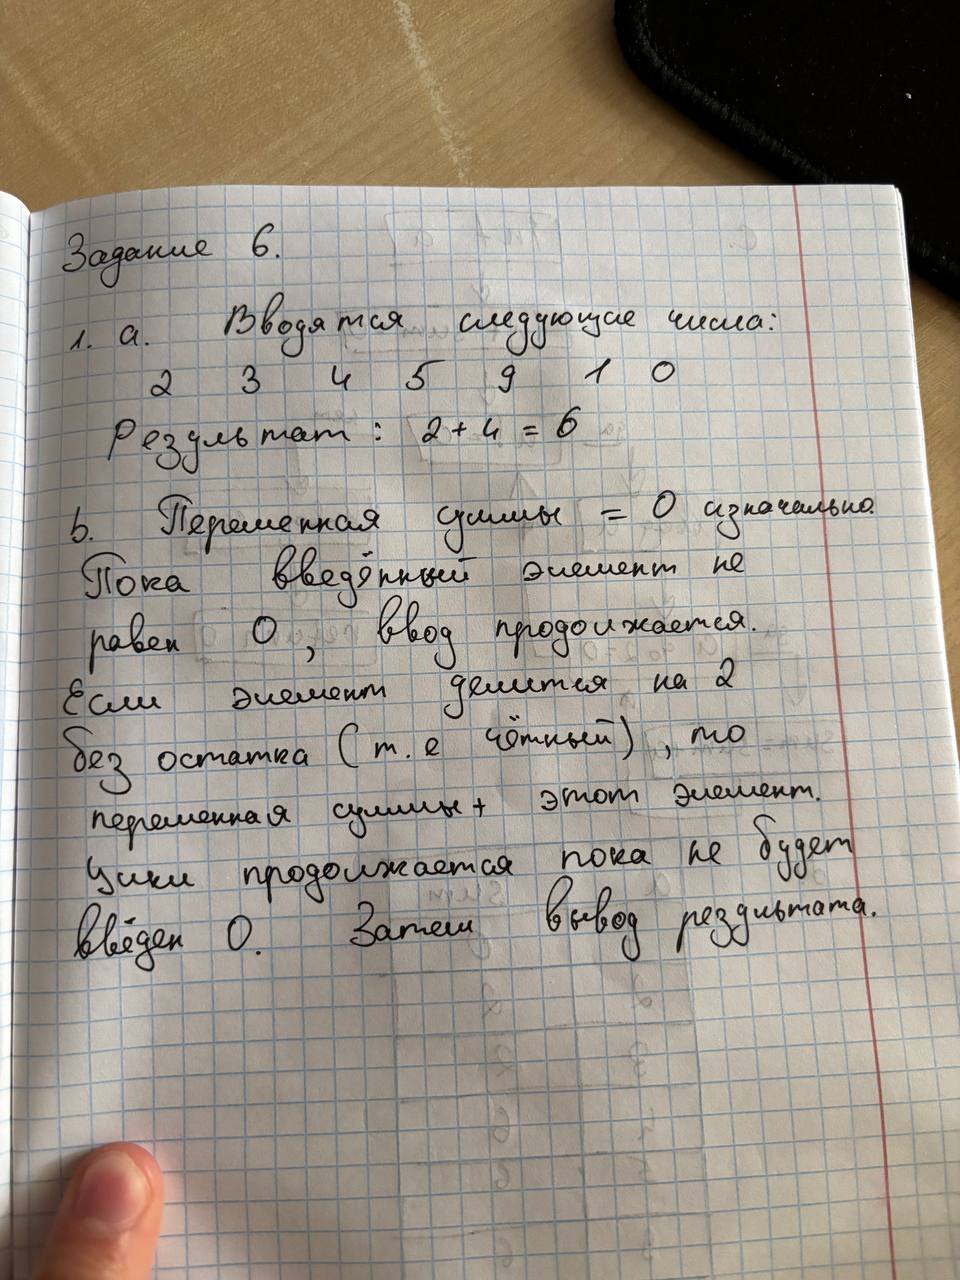 Задание 6.
1. a. Вводятся следующие числа:
2 3 4 5 9 1 0
Результат: 2+4=6
b. Переменная суммы = 0 изначально.
Пока введённый элемент не
равен 0, ввод продолжается.
Если элемент делится на 2
без остатка (т.е чётный), то
переменная суммы + этот элемент.
Цикл продолжается пока не будет
введен 0. Затем вывод результата.